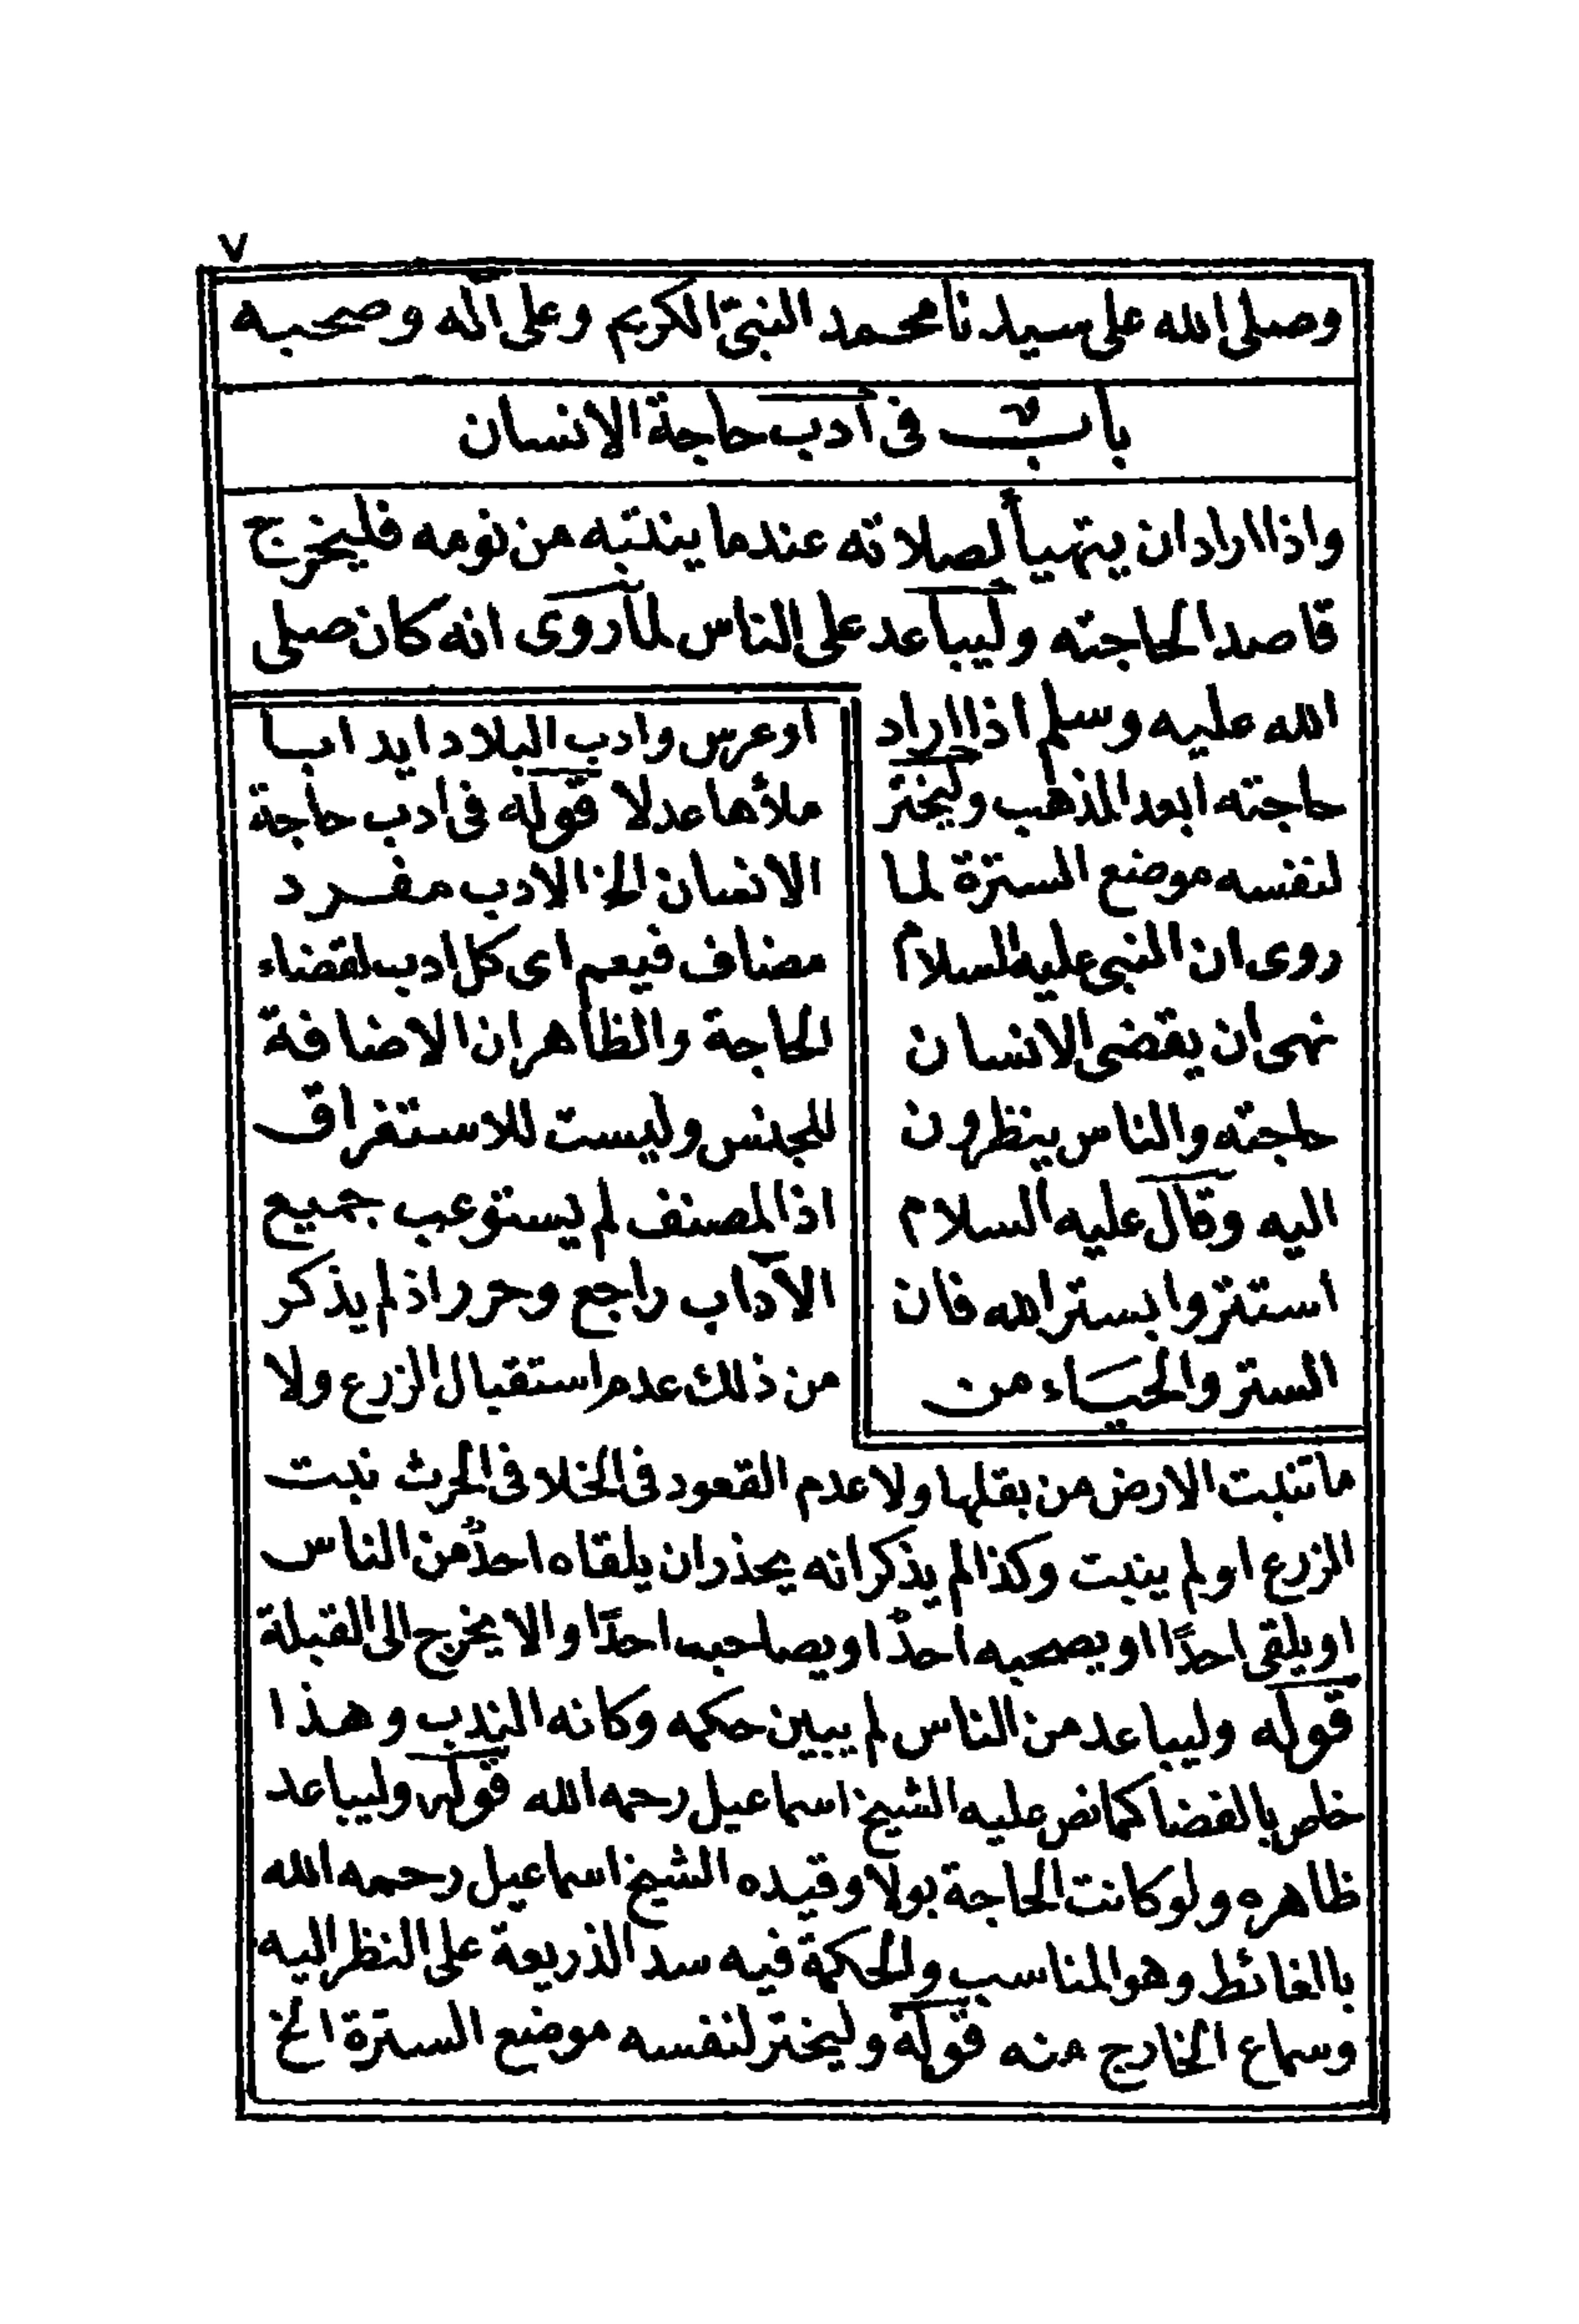 ٧
وصلى الله على سيدنا محمد النبيّ الكريم وعلى آله وصحبه
باب في آدب حاجة الانسان
واذا اراد ان يتهيأ لصلاته عندما ينتبه من نومه فليخرج
قاصدا لحاجته وليباعد على الناس لما روى انه كان صلى
الله عليه وسلم اذا اراد
حاجته ابعد المذهب وليختر
لنفسه موضع السترة لما
روى ان النبي عليه السلام
نهى ان يقضى الانسان
حاجته والناس ينظرون
اليه وقال عليه السلام
استتروا بستر الله فان
الستر والحياء من
او عرس وادب البلاد ايدابا
ملأها عدلا قوله في ادب حاجة
الانسان الخ الادب مفرد
مضاف فيعم اى كل ادب لقضاء
الحاجة والظاهر ان الاضافة
للجنس وليست للاستغراق
اذ المصنف لم يستوعب جميع
الآداب راجع وحرر اذ لم يذكر
من ذلك عدم استقبال الزرع ولا
ما تنبت الارض من بقلها ولا عدم القعود في الخلا في الحرث نبت
الزرع او لم ينبت وكذا لم يذكر انه يحذر ان يلقاه احدٌ من الناس
او يلقى احدًا او يصحبه احدٌ او يصاحب احدًا والا يخرج الى القبلة
قوله وليباعد من الناس لم يبين حكمه وكانه الندب وهذا
خاص بالفضا كما نص عليه الشيخ اسماعيل رحمه الله قوله وليباعد
ظاهره ولو كانت الحاجة بولا وقيده الشيخ اسماعيل رحمه الله
بالغائط وهو المناسب والحكمة فيه سد الذريعة على النظر اليه
وسماع الخارج منه قوله وليختر لنفسه موضع السترة الخ